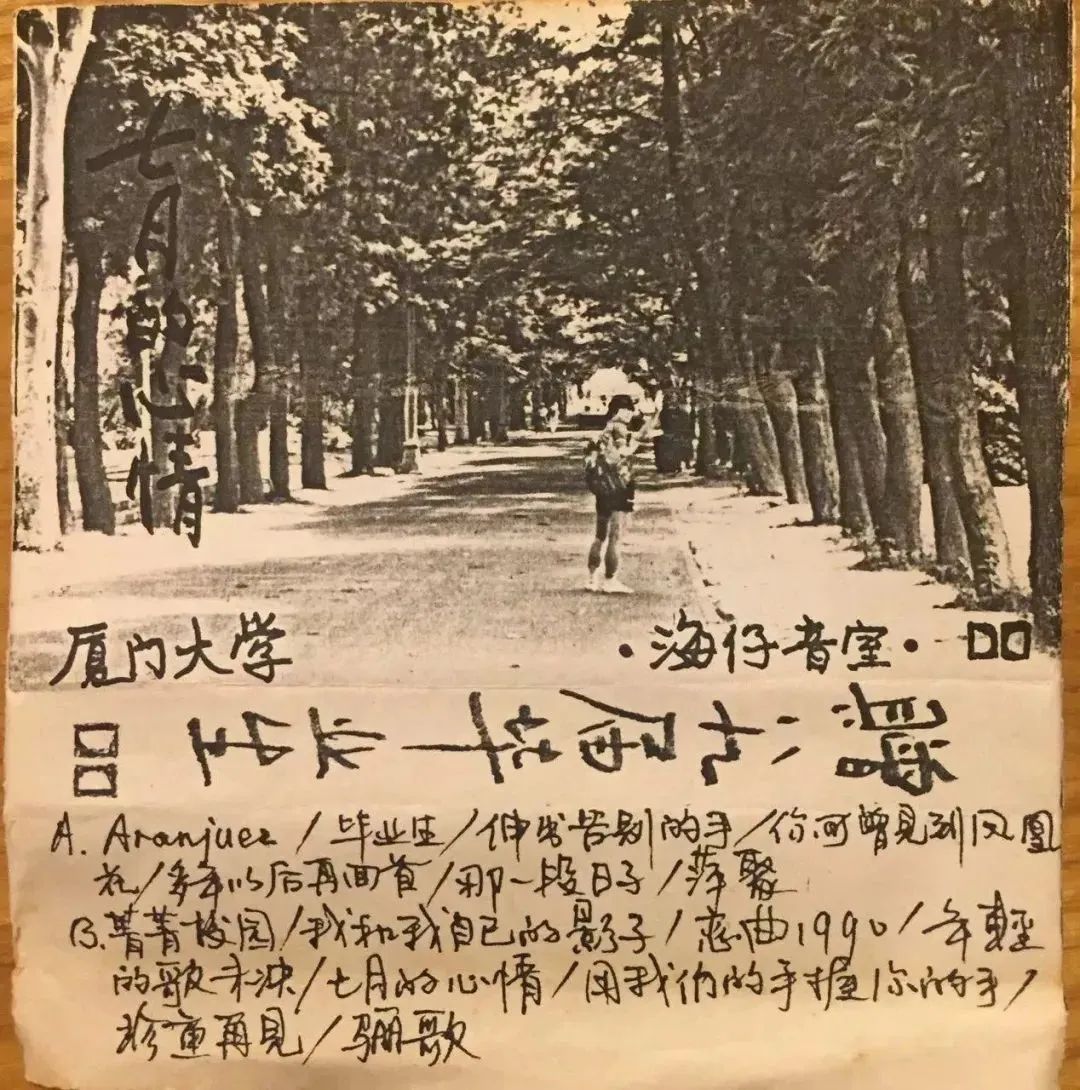 七月的心情
厦门大学
·海仔音室·
A. Aranjuez/毕业生/伸出告别的手/你可曾見到凤凰
花/多年以后再回首/那一段日子/萍聚
B.菁菁校园/我和我自己的影子/恋曲1990/年輕
的歌/七月的心情/用我们的手握你的手/
珍重再見/骊歌